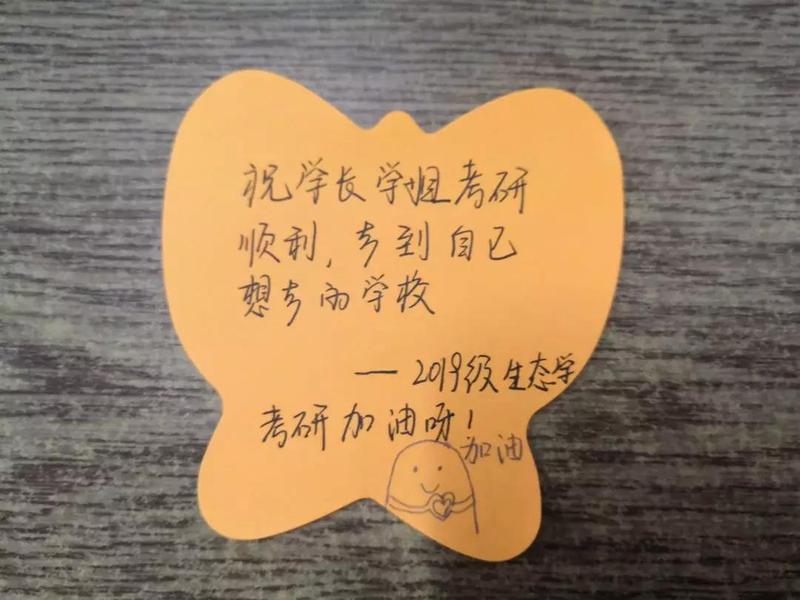 祝学长学姐考研
顺利，去到自己
想去的学校
— 2019级生态学
考研加油呀！
加油